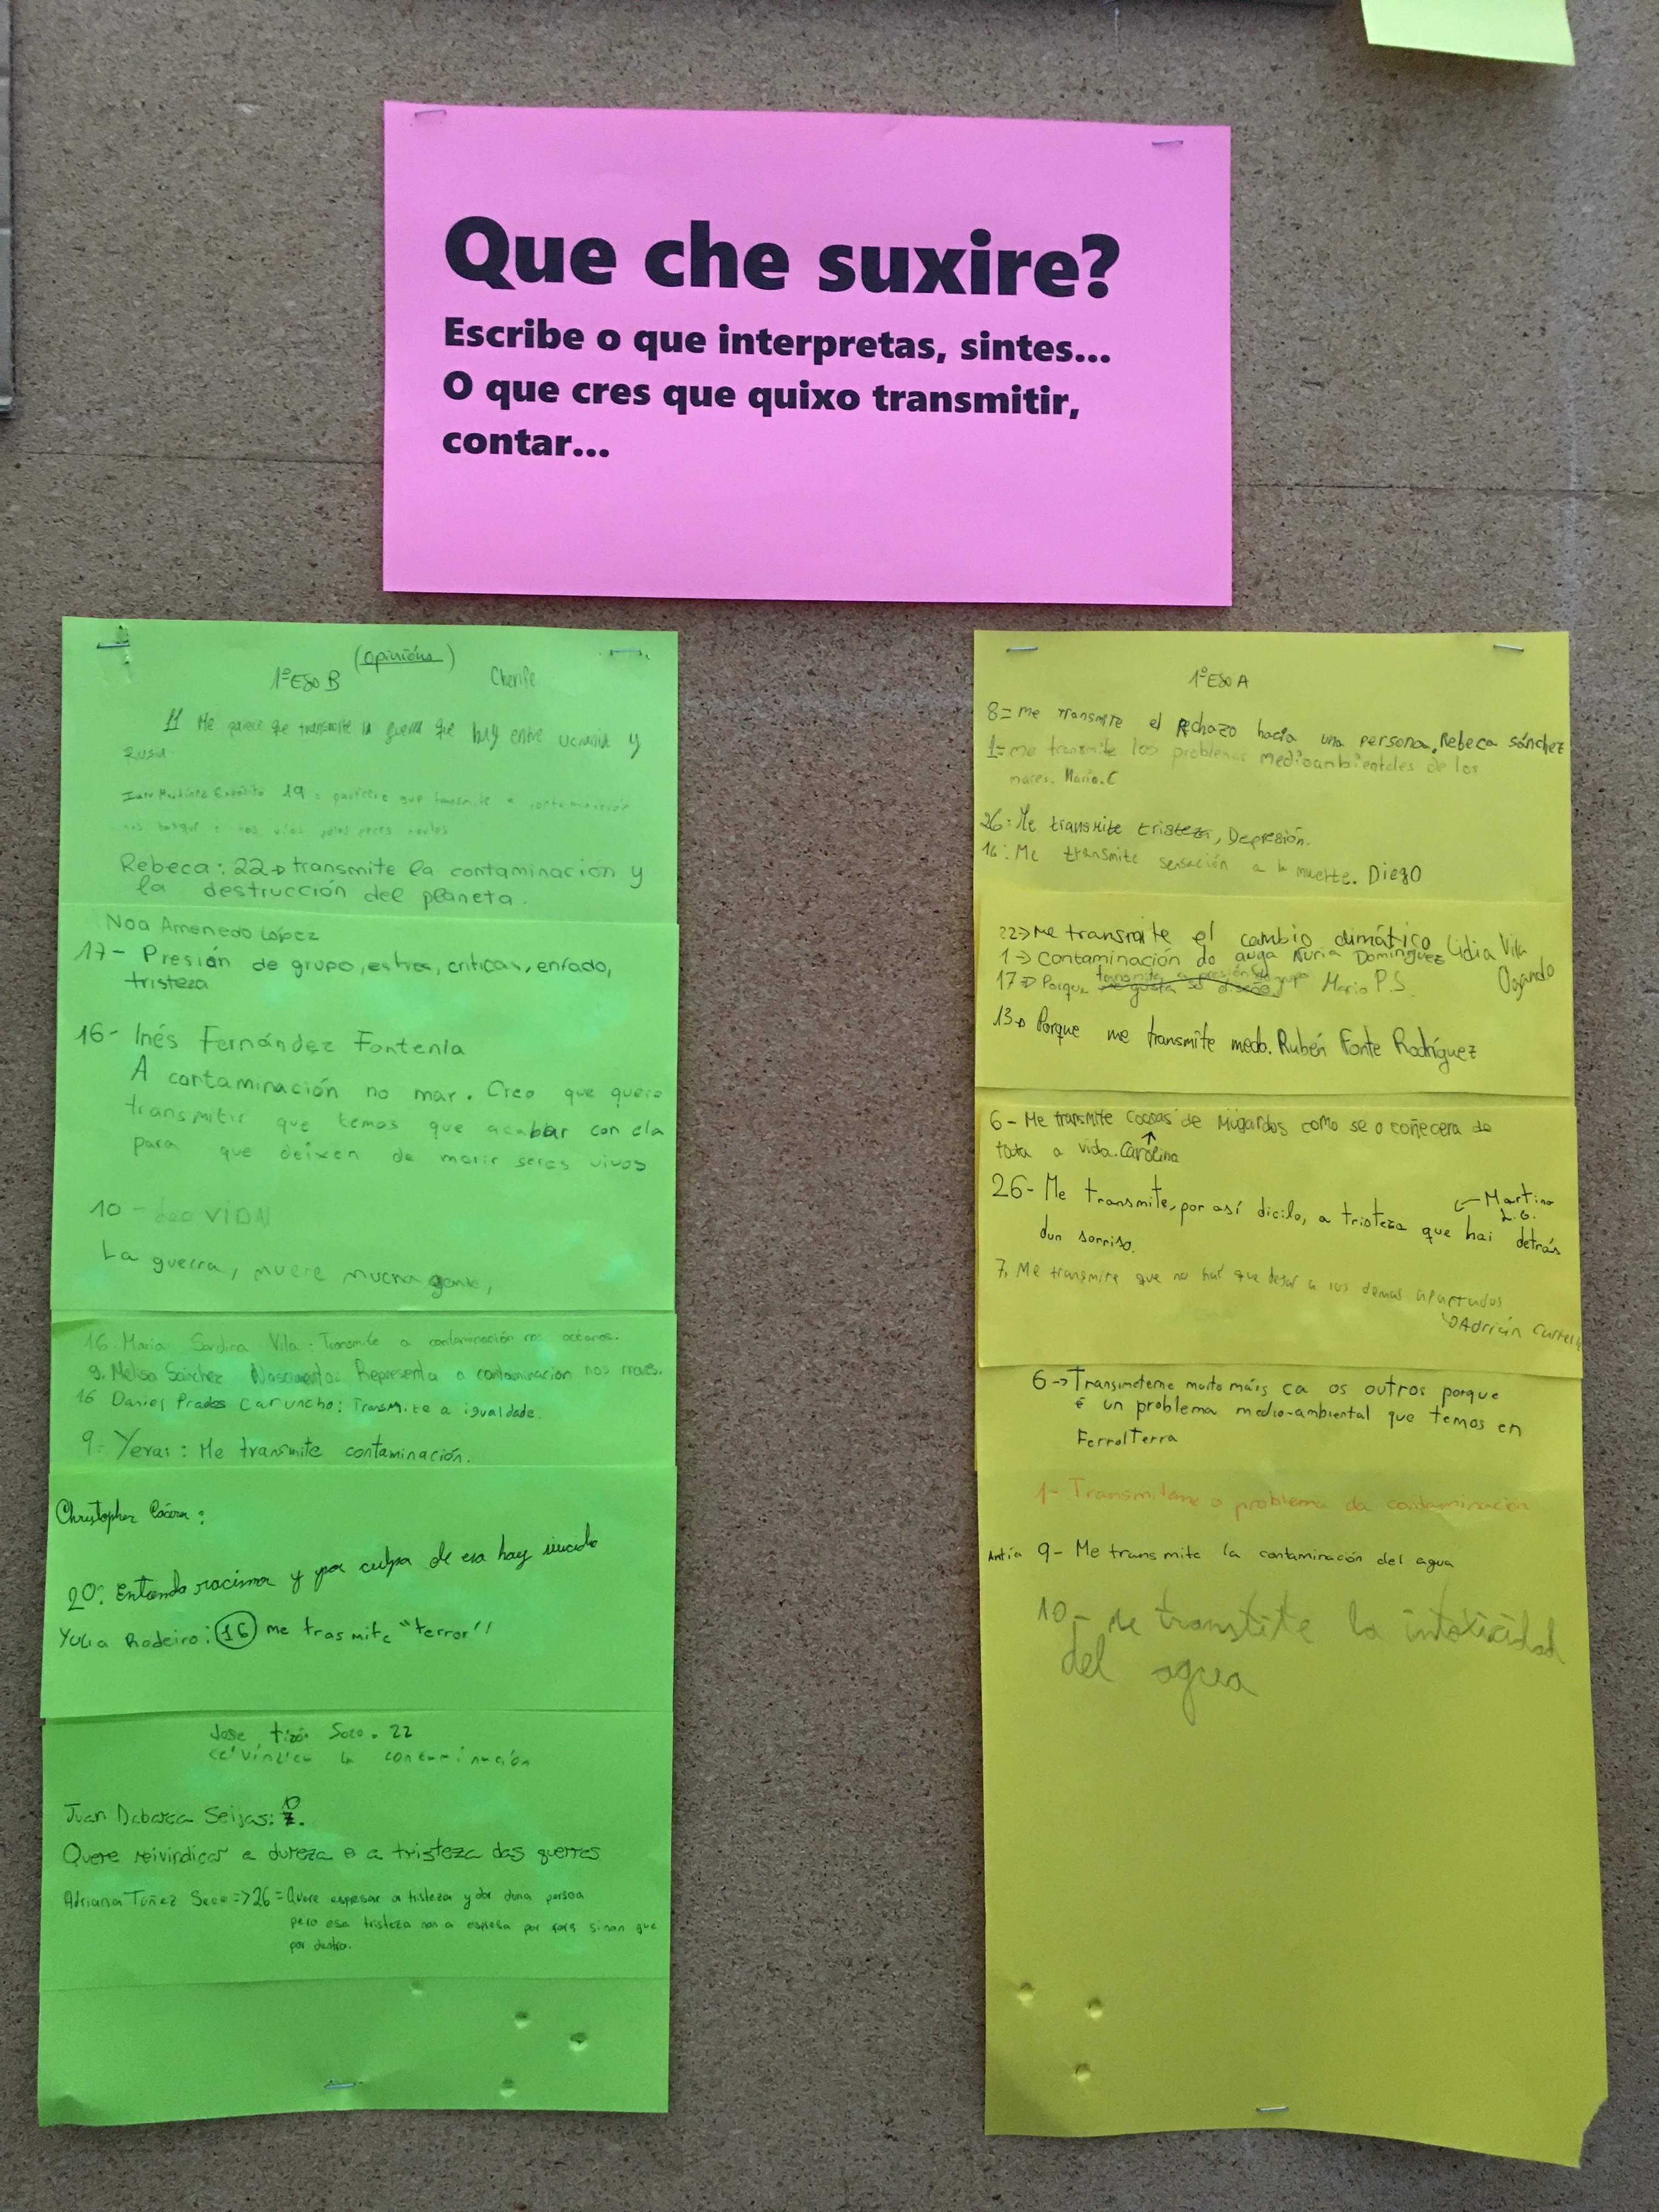 Que che suxire?
Escribe o que interpretas, sintes...
O que cres que quixo transmitir,
contar...
(opinións)
1º ESO B
Cherife
11 Me parece que transmite la guerra que hay entre Ucrania y
Rusia
19: que transmite a contaminación
nos e nos ríos polos peces mortos
Rebeca: 22→ transmite la contaminación y
la destrucción del planeta.
Noa Amenedo López
17- Presión de grupo, estres, criticas, enfado,
tristeza
16- Inés Fernández Fontenla
A contaminación no mar. Creo que quere
transmitir que temos que acabar con ela
para que deixen de morir seres vivos
10 - Leo VIDAL
La guerra, muere mucha gente,
16. Maria Sardina Vila: Transmite a contaminación nos océanos.
9. Melisa Sánchez Nascimento: Representa a contaminación nos mares.
16 Daniel Prados Caruncho: Transmite a igualdade.
9- Yerai: Me transmite contaminación.
Christopher :
20: Entiendo racismo y por culpa de eso hay suicidio
Yulia Rodeiro: 16 me trasmite "terror"
Jose 22
la contaminación
Juan Dabarca Seijas: 10.
Quere reivindicar a dureza e a tristeza das guerras
Adriana Túñez Seco => 26 = Quere espresar a tristeza y dor duna persoa
pero esa tristeza non a espresa por fora sinon que
por dentro.
1º ESO A
8= me transmite el rechazo hacia una persona, Rebeca Sánchez
1= me transmite los problemas medioambientales de los
mares. Mario.C
26: Me transmite tristeza, Depresión.
16: Me transmite sensación a la muerte. Diego
22→ Me transmite el cambio climático Lidia Vila Ogando
1→ Contaminación do auga Nuria Domínguez
17→ Porque transmite a presión de grupo me gusta su diseño Mario P.S.
13→ Porque me transmite medo. Rubén Fonte Rodríguez
6- Me transmite cousas de Mugardos como se o coñecera de
toda a vida. Carolina
26- Me transmite, por así dicilo, a tristeza que hai detrás ← Martina L.G.
dun sorriso.
7. Me transmite que no hai que dejar a los demas apartados
→Adrián
6→ Transmiteme moito máis ca os outros porque
é un problema medio-ambiental que temos en
FerrolTerra
1- Transmiteme o problema da contaminación
Antía 9- Me transmite la contaminación del agua
10- Me transtite la intoxicidad
del agua